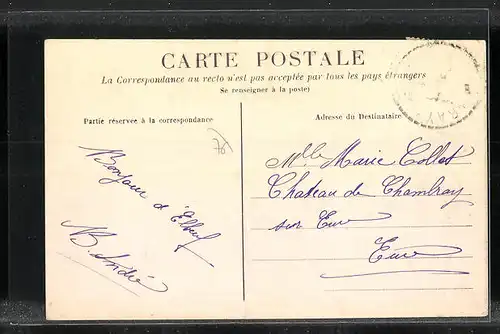 CARTE POSTALE
La Correspondance au recto n'est pas acceptée par tous les pays étrangers
Se renseigner à la poste)
Partie réservée à la correspondance
Adresse du Destinataire
76
Bonjour d'Elbeuf
B. André
Mlle Marie Collet
Chateau de Chambray
sur Eure
Eure
RAY